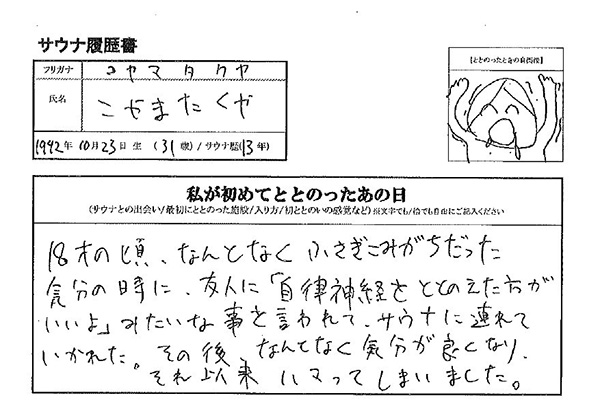 サウナ履歴書
フリガナ コヤマタクヤ
氏名 こやまたくや
1992年 10月23日生 (31歳)/サウナ歴(13年)
【ととのったときの自画像】
私が初めてととのったあの日
(サウナとの出会い/最初にととのった施設/入り方/初ととのいの感覚など)※文字でも/絵でも自由にご記入ください
18才の頃、なんとなくふさぎこみがちだった
気分の時に、友人に「自律神経をととのえた方が
いいよ」みたいな事を言われて、サウナに連れて
いかれた。その後、なんとなく気分が良くなり、
それ以来ハマってしまいました。